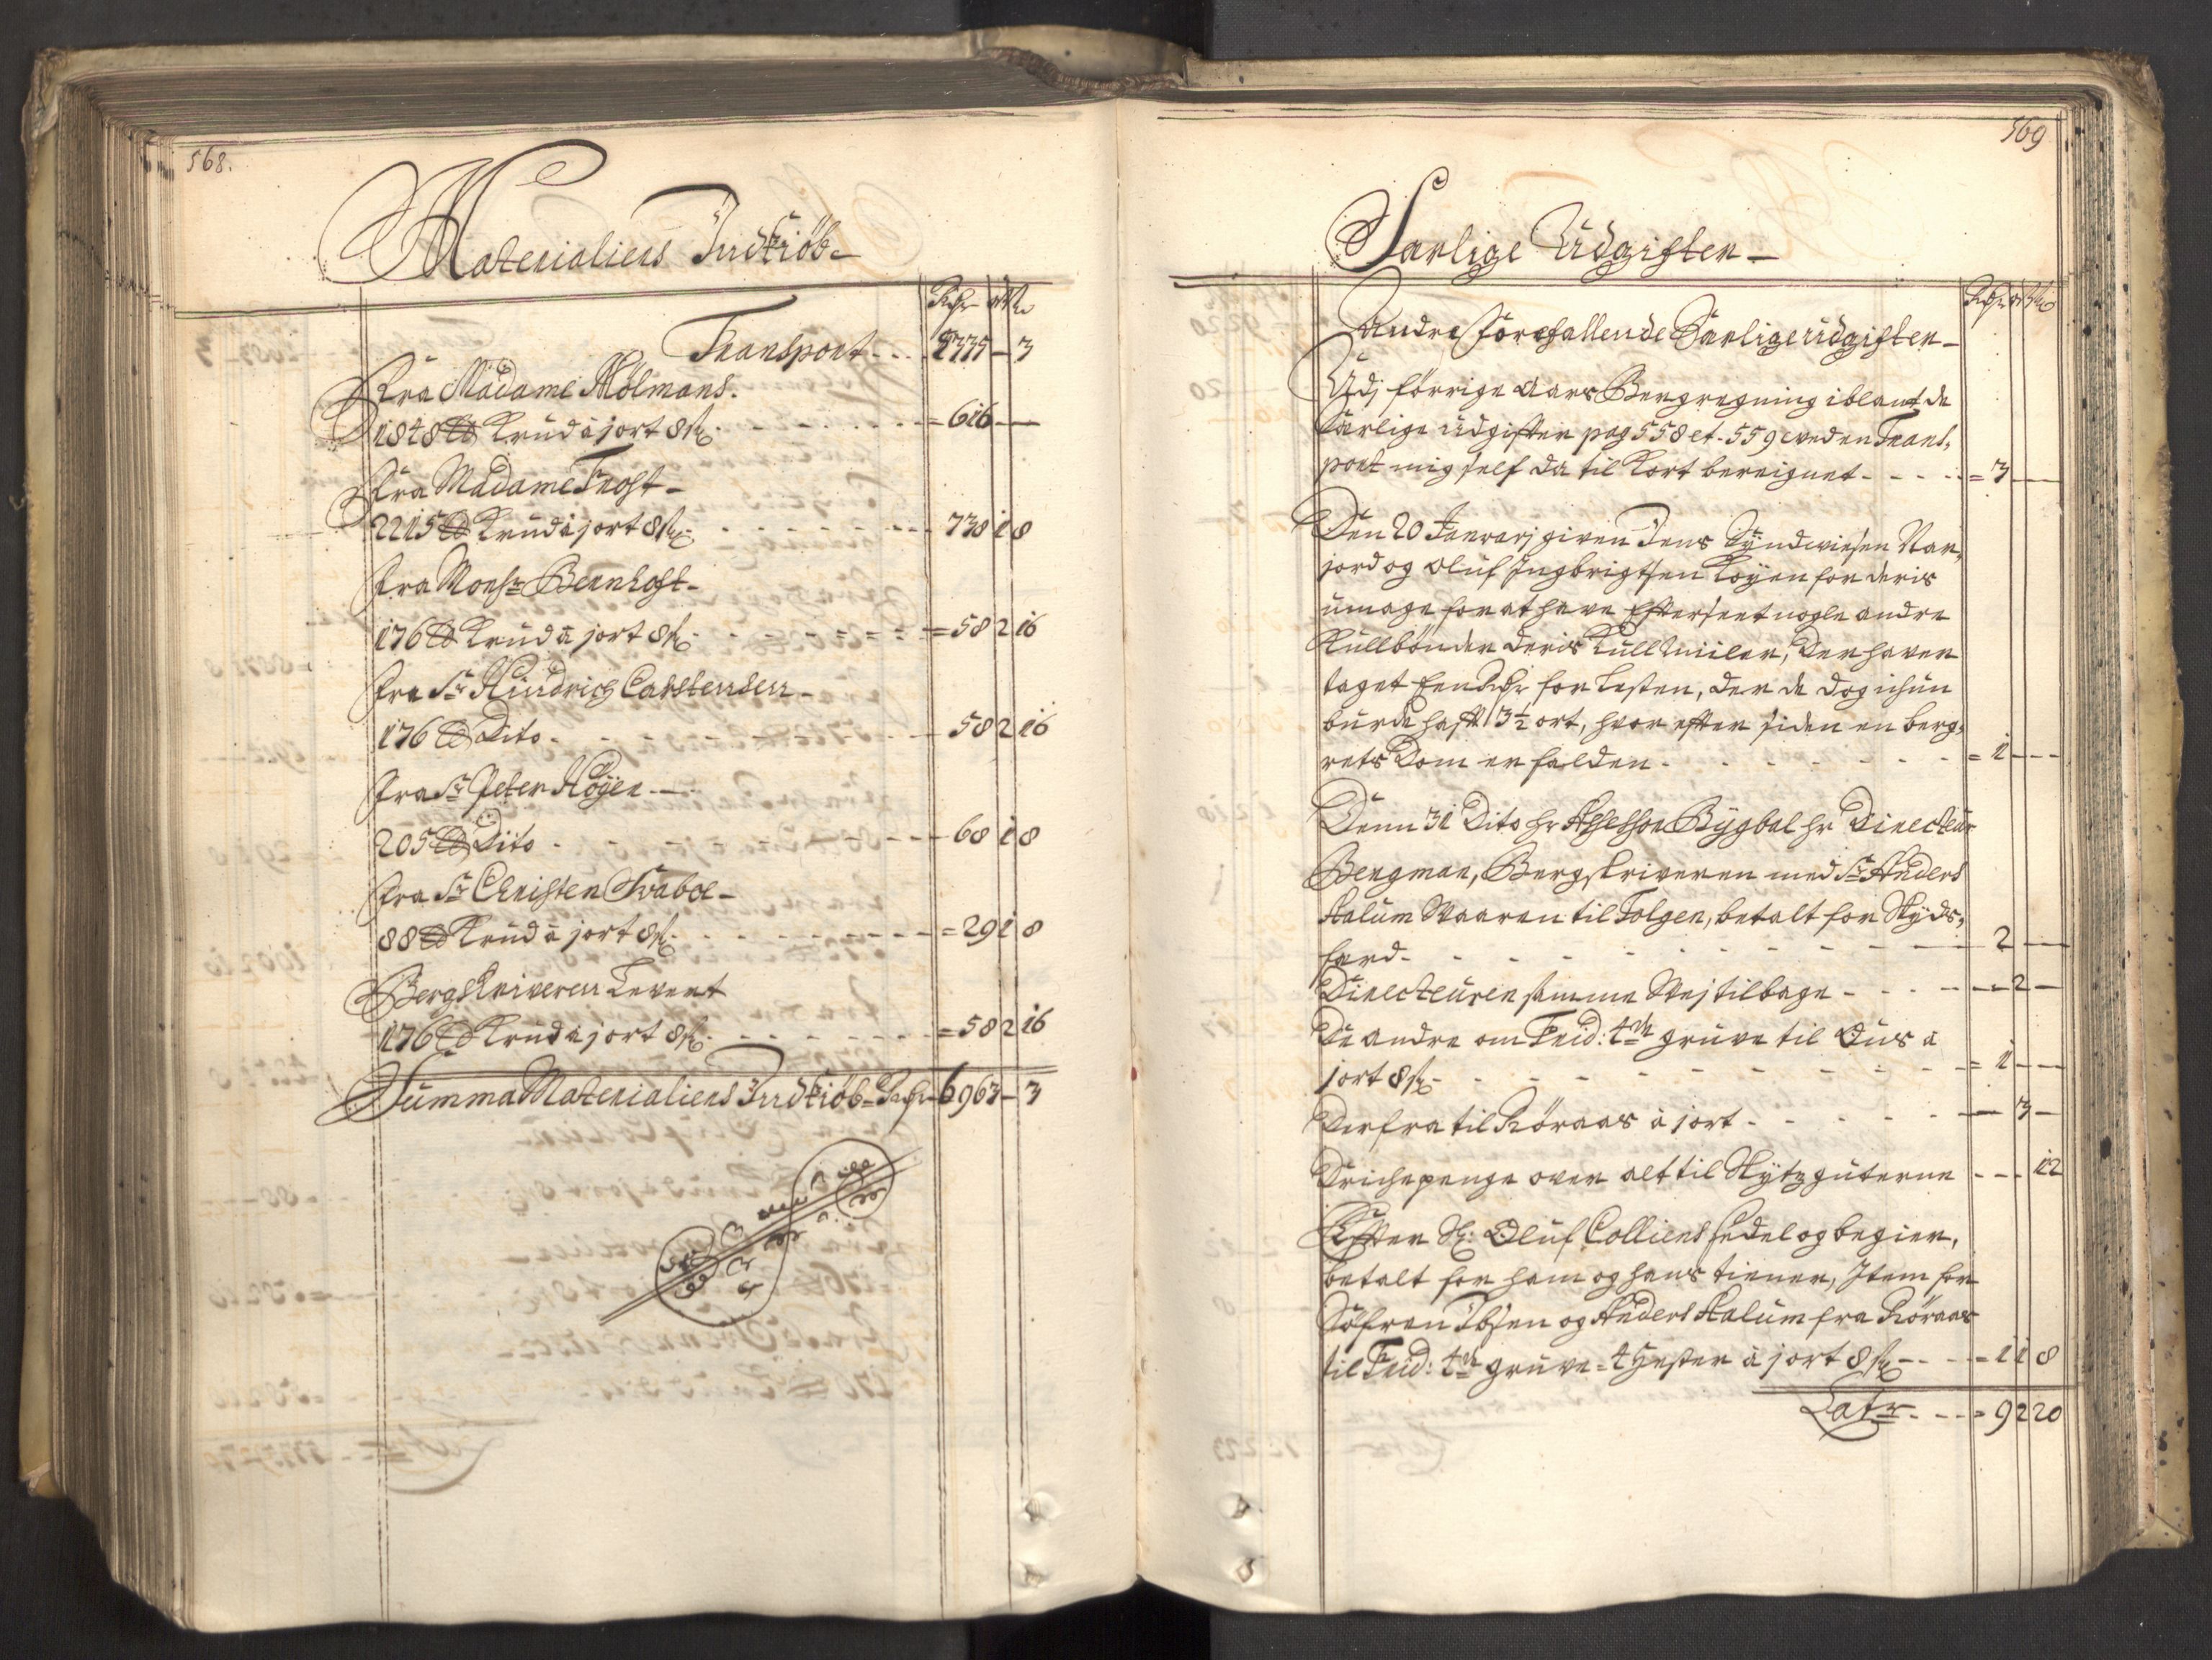 568.
Materialiers Indkiøb
Rdr ort ß
Transport - - - 5335 - 3
Fra Madame Mølmans.
1848 ℔ Krud à 1 ort 8 ß - - - = 616 -
Fra Madame Trost -
2215 ℔ Krud à 1 ort 8 ß - - - 738 1 8
Fra Monsr Bernhoft -
176 ℔ Krud à 1 ort 8 ß - - - = 58 2 16
Fra Sr Hindrich Carstensen -
176 ℔ Dito - - - 58 2 16
Fra Sr Peter Höyer -
205 ℔ Dito - - - 68 1 8
Fra Sr Christen Svaboe -
88 ℔ Krud à 1 ort 8 ß - - - = 29 1 8
Bergskriveren Levert
176 ℔ Krud à 1 ort 8 ß - - - = 58 2 16
Summa Materialiers Indkiöb - Rdr 6963 - 3
569
Særlige Udgifter -
Rdr ort ß
Andre Forefallende Særlige udgifter -
Udj förrige Aars Bergregning iblant de
Særlige udgifter pag 558 et 559 ved en Trans-
port mig self da til Kort bereignet - - - = 3 -
Den 20 Januarj given Jens Syndviesen Nar-
jord og Oluf Ingbrigtsen Koyen for deris
umage for at have Efterseet nogle andre
Kullbönder deris Kull Miiler, Der haver
taget Een Rdr for Lesten, der de dog ichun
burde hafft 3½ ort, hvor efter siden en berg-
rets Dom er falden - - - = 1 - -
Denn 31 Dito hr Assessor Bygbal hr Directeur
Bergman, Bergskriveren med Sr Anders
Aalum Waaren til Tolgen, betalt for Skyds-
ferd - - - 2 -
Directeuren samme Wej tilbage - - - 2 -
De andre om Frid: 4de gruve til Ous à
1 ort 8 ß - - - = 1 - -
Derfra til Röraas à 1 ort - - - 3 -
Drichepenge over alt til Skytzguterne - - - 12
Efter Sl: Oluf Colliens sedel og begier,
betalt for ham og hans tiener, Item for
Söfren Ibsen og Anders Aalum fra Röraas
til Frid: 4de gruve = 4 Hester à 1 ort 8 ß - - - = 1 1 8
Latr - - - = 9 2 20